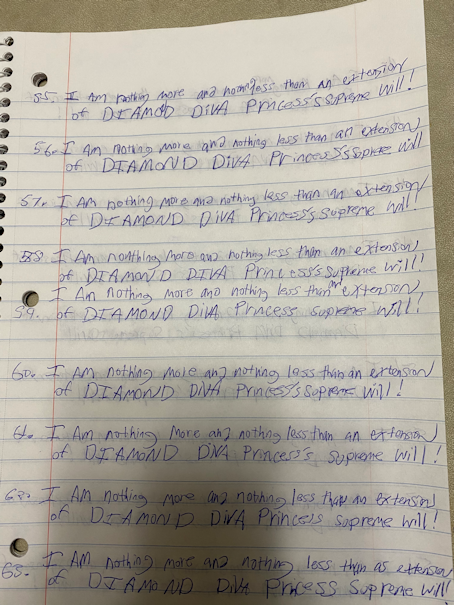 55. I Am nothing more and nonless than an extension
of DIAMOND DiVA Princess's Supreme Will!
56. I Am nothing more and nothing less than an extension
of DIAMOND DIVA Princess's Supreme Will
57. I Am nothing more and nothing less than an extension
of DIAMOND DiVA Princess's Supreme Will!
58. I Am nonthing more and nothing less than an extension
of DIAMOND DIVA Princess's Supreme Will!
59. I Am nothing more and nothing less than an extension
of DIAMOND DiVA Princess supreme will!
60. I Am nothing more and nothing less than an extension
of DIAMOND DiVA Princess's Supreme Will!
61. I Am nothing More and nothing less than an extension
of DIAMOND DIVA Princess's Supreme Will!
62. I AM nothing more and nothing less than an extension
of DIAMOND DIVA Princess supreme will!
63. I AM nothing more and nothing less than as extension
of DIAMOND DIVA Princess Supreme Will